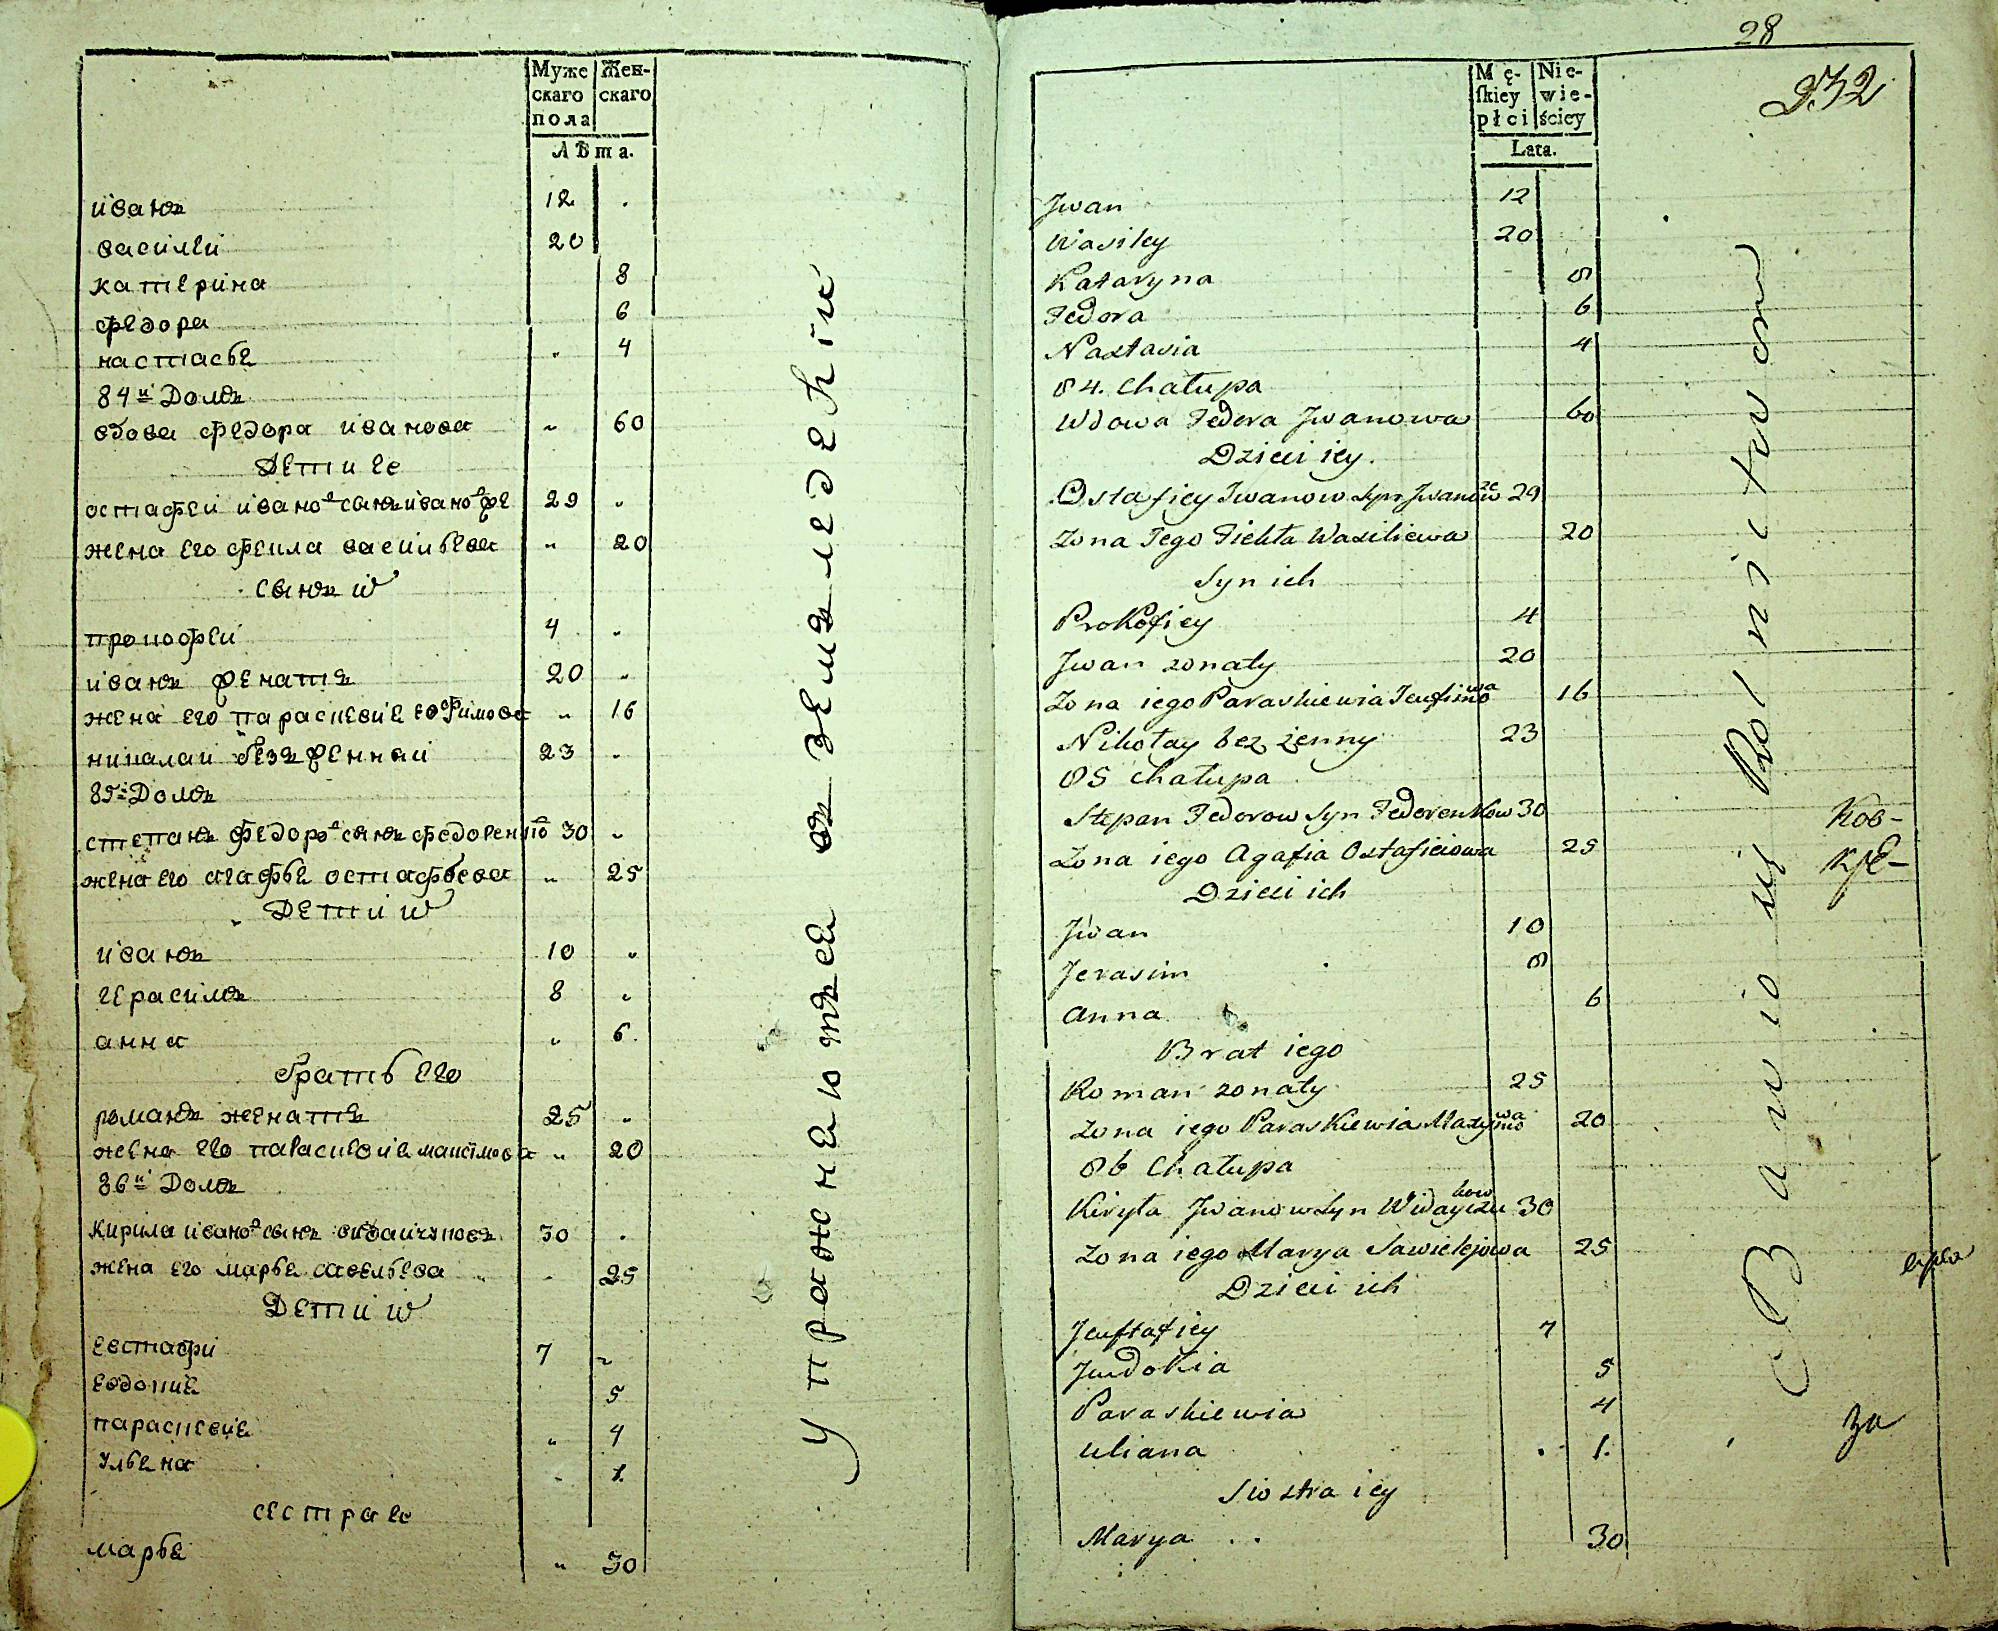 Муже
скаго
пола
Жен-
скаго
Лѣта.
иванъ 12
василеи 20
катерина 8
федора 6
настасье 4
84й Домъ
вдова федора иванова 60
Дети ее
остафеи ивановъ сынъ 29
жена его фекла васильева 20
сынъ их
прокофеи 4
иванъ женатъ 20
жена его параскевие евфимова 16
никалаи безженнаи 23
85й Домъ
степанъ федоровъ сынъ федоренко 30
жена его агафье остафьева 25
Дети их
иванъ 10
герасимъ 8
анна 6
братъ его
романъ женатъ 25
жена его параскевие максимова 20
86й Домъ
кирила ивановъ сынъ видаичуковъ 30
жена его марье савельева 25
Дети их
евстафи 7
евдокие 5
параскевие 4
ульена 1.
сестра ее
марье 30
упражнеютъсе въ земъледелии
28
932
Mę-
ſkiey
płci
Nie-
wie-
ściey
Lata.
Jwan 12
Wasiley 20
Kataryna 8
Fedora 6
Nastasia 4
84. Chałupa
Wdowa Fedora Jwanowa 60
Dzieci iey.
Ostafiey Jwanow Syn 29
Żona Jego Fiekła Wasiliewa 20
Syn ich
Prokofiey 4
Jwan żonaty 20
Żona iego Paraskiewia Jeufimowa 16
Nikołay bez żenny 23
85 Chałupa
Stepan Fedorow Syn Fedorenkow 30
Żona iego Agafia Ostafieiowa 25
Dzieci ich
Jwan 10
Jerasim 8
Anna 6
Brat iego
Roman żonaty 25
Żona iego Paraskiewia Maxymowa 20
86 Chałupa
Kiryła Jwanow Syn Widayczukow 30
Żona iego Marya Sawielejowa 25
Dzieci ich
Jeuſtafiey 7
Jeudokia 5
Paraskiewia 4
Uliana 1.
Siostra iey
Marya 30
Bawio się Rolnictwem
Ков-
кре-
за